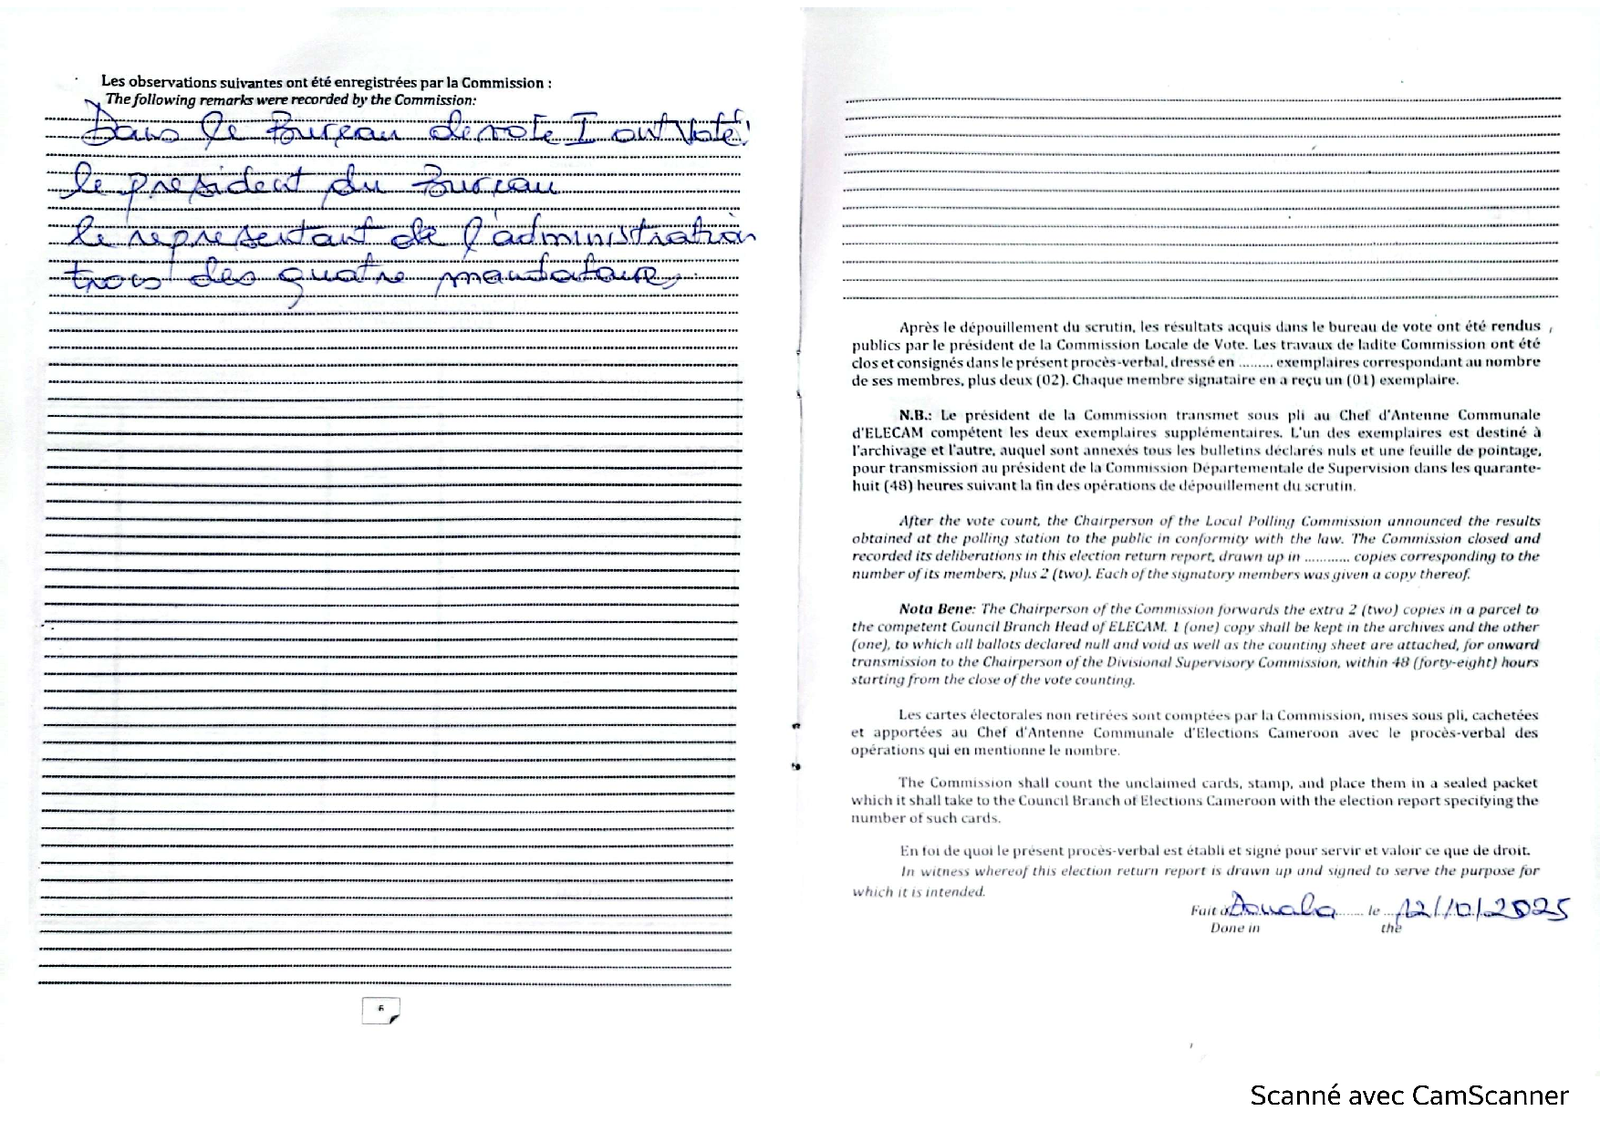 Les observations suivantes ont été enregistrées par la Commission :
The following remarks were recorded by the Commission:
Dans le Bureau de vote I ont voté:
le president du Bureau
le representant de l'administration
trois des quatre mandataires
6
Après le dépouillement du scrutin, les résultats acquis dans le bureau de vote ont été rendus
publics par le président de la Commission Locale de Vote. Les travaux de ladite Commission ont été
clos et consignés dans le présent procès-verbal, dressé en ......... exemplaires correspondant au nombre
de ses membres, plus deux (02). Chaque membre signataire en a reçu un (01) exemplaire.
N.B.: Le président de la Commission transmet sous pli au Chef d'Antenne Communale
d'ELECAM compétent les deux exemplaires supplémentaires. L'un des exemplaires est destiné à
l'archivage et l'autre, auquel sont annexés tous les bulletins déclarés nuls et une feuille de pointage,
pour transmission au président de la Commission Départementale de Supervision dans les quarante-
huit (48) heures suivant la fin des opérations de dépouillement du scrutin.
After the vote count, the Chairperson of the Local Polling Commission announced the results
obtained at the polling station to the public in conformity with the law. The Commission closed and
recorded its deliberations in this election return report, drawn up in ............ copies corresponding to the
number of its members, plus 2 (two). Each of the signatory members was given a copy thereof.
Nota Bene: The Chairperson of the Commission forwards the extra 2 (two) copies in a parcel to
the competent Council Branch Head of ELECAM. 1 (one) copy shall be kept in the archives and the other
(one), to which all ballots declared null and void as well as the counting sheet are attached, for onward
transmission to the Chairperson of the Divisional Supervisory Commission, within 48 (forty-eight) hours
starting from the close of the vote counting.
Les cartes électorales non retirées sont comptées par la Commission, mises sous pli, cachetées
et apportées au Chef d'Antenne Communale d'Elections Cameroon avec le procès-verbal des
opérations qui en mentionne le nombre.
The Commission shall count the unclaimed cards, stamp, and place them in a sealed packet
which it shall take to the Council Branch of Elections Cameroon with the election report specifying the
number of such cards.
En foi de quoi le présent procès-verbal est établi et signé pour servir et valoir ce que de droit.
In witness whereof this election return report is drawn up and signed to serve the purpose for
which it is intended.
Fait à Douala ...... le ... 12/10/2025
Done in the
Scanné avec CamScanner